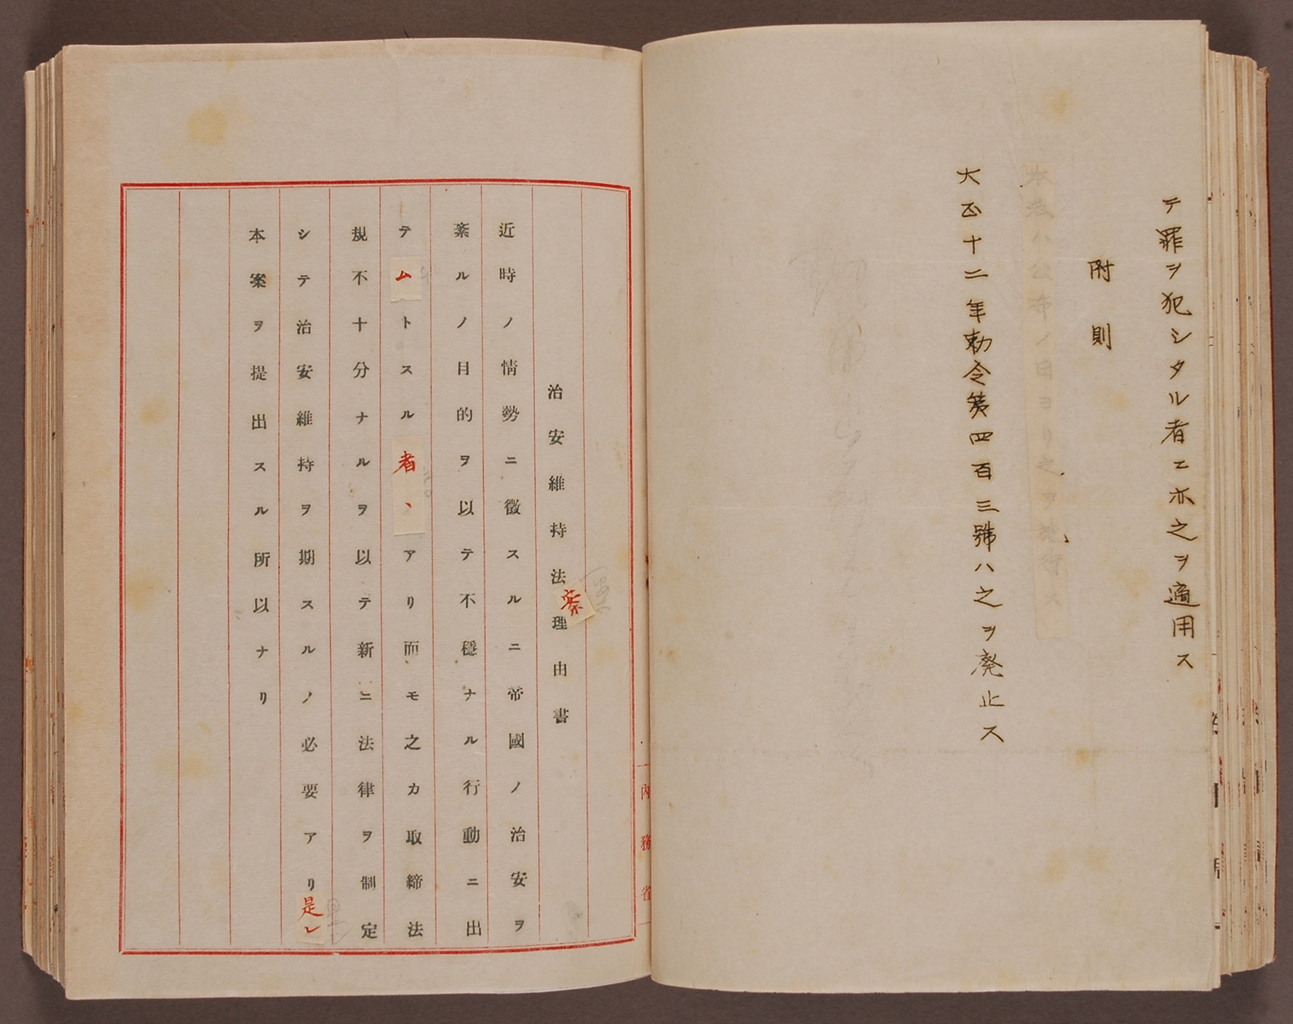 テ罪ヲ犯シタル者ニ亦之ヲ適用ス
附則
本法ハ公布ノ日ヨリ之ヲ施行ス
大正十二年勅令第四百三號ハ之ヲ廃止ス
內務省
治安維持法案理由書
近時ノ情勢ニ徵スルニ帝國ノ治安ヲ
紊ルノ目的ヲ以テ不穩ナル行動ニ出
テムトスル者、アリ而モ之カ取締法
規不十分ナルヲ以テ新ニ法律ヲ制定
シテ治安維持ヲ期スルノ必要アリ是レ
本案ヲ提出スル所以ナリ